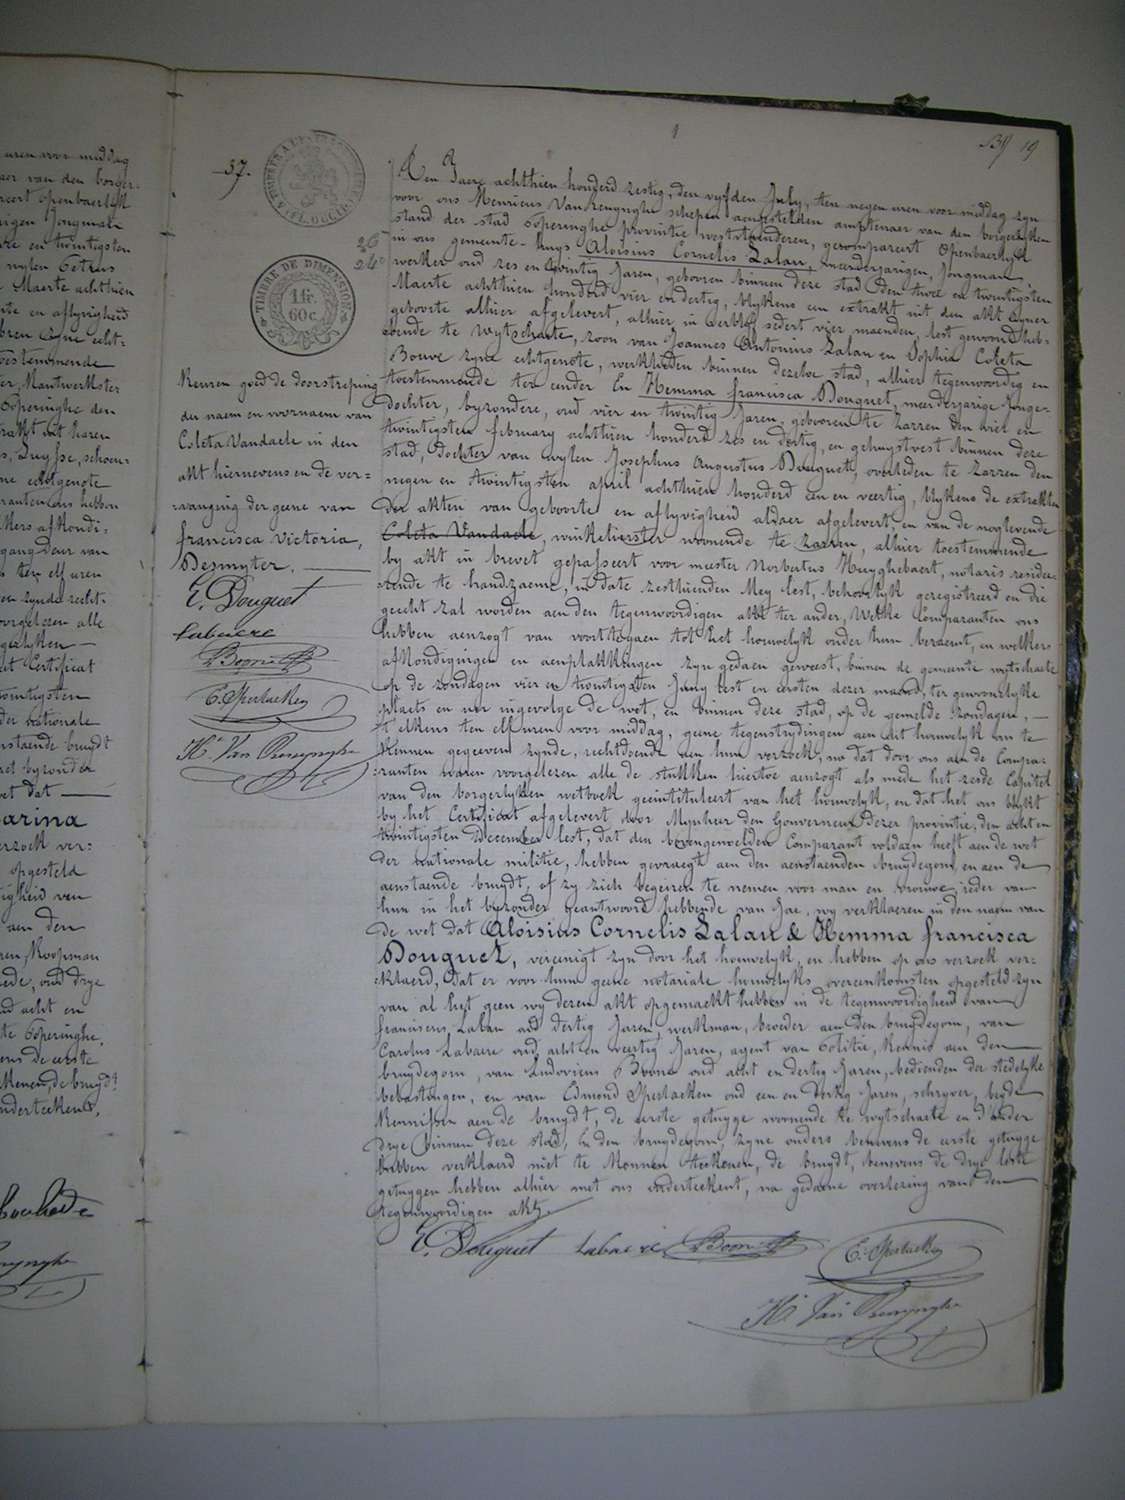 1
139 19
37.
TIMBRE DE DIMENSION
1 fr.
60 c.
26
24
Kenren goed de doorstreping
der naem en voornaem van
Coleta Vandaele in den
akt hiernevens en de ver-
vanging der geene van
francisca victoria,
Desmyter.
E. Douguet
Labaere
Boone
E. Sperlaeken
Hi Van Renynghe
Den Jaere achthien honderd zestig, den vyfden July, ten negen uren voor middag zyn
voor ons Henricus Van Renynghe schepen aengestelden amptenaer van den borgerlyken
stand der stad Poperinghe provintie westvlaenderen, gecompareert openbaerlyk
in ons gemeente-huys Aloisius Cornelis Lalau, meerderjarigen, Jongman,
werker oud zes en twintig Jaren, gebooren binnen deze stad den twee en twintigsten
Maerte achthien honderd vier en dertig, blykens een extrakt uit den akt zyner
geboorte alhier afgelevert, alhier in verblyf sedert vier maenden lest gewoond heb-
bende te Wytschaete, zoon van Joannes Antonius Lalau en Sophia Coleta
Bouve zyne echtgenote, werklieden binnen dezelve stad, alhier tegenwoordig en
toestemmende ter eender En Hemma francisca Douguet, meerderjarige Jonge-
dochter, byzondere, oud vier en twintig Jaren, gebooren te Zarren den vier en
twintigsten february achthien honderd zes en dertig, en gehuystvest binnen deze
stad, Dochter van wylen Josephus Augustus Douguet, overleden te Zarren den
negen en twintigsten april achthien honderd een en veertig, blykens de extrakten
der akten van geboorte en aflyvigheid aldaer afgelevert, en van de noglevende
Coleta Vandaele, winkelierster woonende te Zarren, alhier toestemmende
by akt in brevet gepasseert voor meester Norbertus Huyghebaert, notaris reside-
rende te handzaeme, in date zesthienden Mey lest, behoorlyk geregistreerd en die
geecht zal worden aen den tegenwoordigen akt ter ander, Welke Comparanten ons
hebben aenzogt van voorttegaen tot het houwelyk onder hun beraemt, en welkers
afkondigingen en aenplakkingen zyn gedaen geweest, binnen de gemeente wytschaete
op de zondagen vier en twintigsten Juny lest en eersten dezer maend, ter gewoonelyke
plaets en uer ingevolge de wet, en binnen deze stad, op de gemelde zondagen,
t'elkens ten elf uren voor middag, geene tegenstrydingen aen dit houwelyk ons te
kennen gegeven zynde, rechtdoende aen hun verzoek, na dat door ons aen de Compa-
ranten waren voorgelezen alle de stukken hiertoe aenzogt als mede het zesde Capitel
van den borgerlyken wetboek geeintituleert van het houwelyk, en dat het ons blykt
by het Certificat afgelevert door Mynheer den Gouverneur dezer provintie, den acht en
twintigsten December lest, dat den bovengemelden Comparant voldaen heeft aen de wet
der nationale militie, hebben gevraegt aen den aenstaenden bruydegom, en aen de
aenstaende bruydt, of zy zich begeiren te nemen voor man en vrouwe, ieder van
hun in het byzonder geantwoord hebbende van Jae, wy verklaeren in den naem van
de wet dat Aloisius Cornelis Lalau & Hemma francisca
Douguet, vereenigt zyn door het houwelyk, en hebben op ons verzoek ver-
klaerd, dat er voor hun geene notariale huwelyks overeenkomsten opgesteld zyn
van al het geen wy dezen akt opgemaekt hebben in de tegenwoordigheid van
franciscus Lalau oud dertig Jaren, werkman, broeder aen den bruydegom, van
Carolus Labaere oud acht en veertig Jaren, agent van Politie, kennis aen den
bruydegom, van Ludovicus Boone oud acht en dertig Jaren, bedienden der stedelyke
belastingen, en van Edmond Sperlaeken oud een en dertig Jaren, schryver, beyde
kennissen aen de bruydt, de eerste getuyge woonende te wytschaete en d'ander
drye binnen deze stad, En den bruydegom, zyne ouders benevens de eerste getuyge
hebben verklaerd niet te konnen teekenen, de bruydt, benevens de drye leste
getuygen hebben alhier met ons onderteekent, na gedaene overlezing van den
tegenwoordigen akt.
E. Douguet Labaere Boone E. Sperlaeken
Hi Van Renynghe